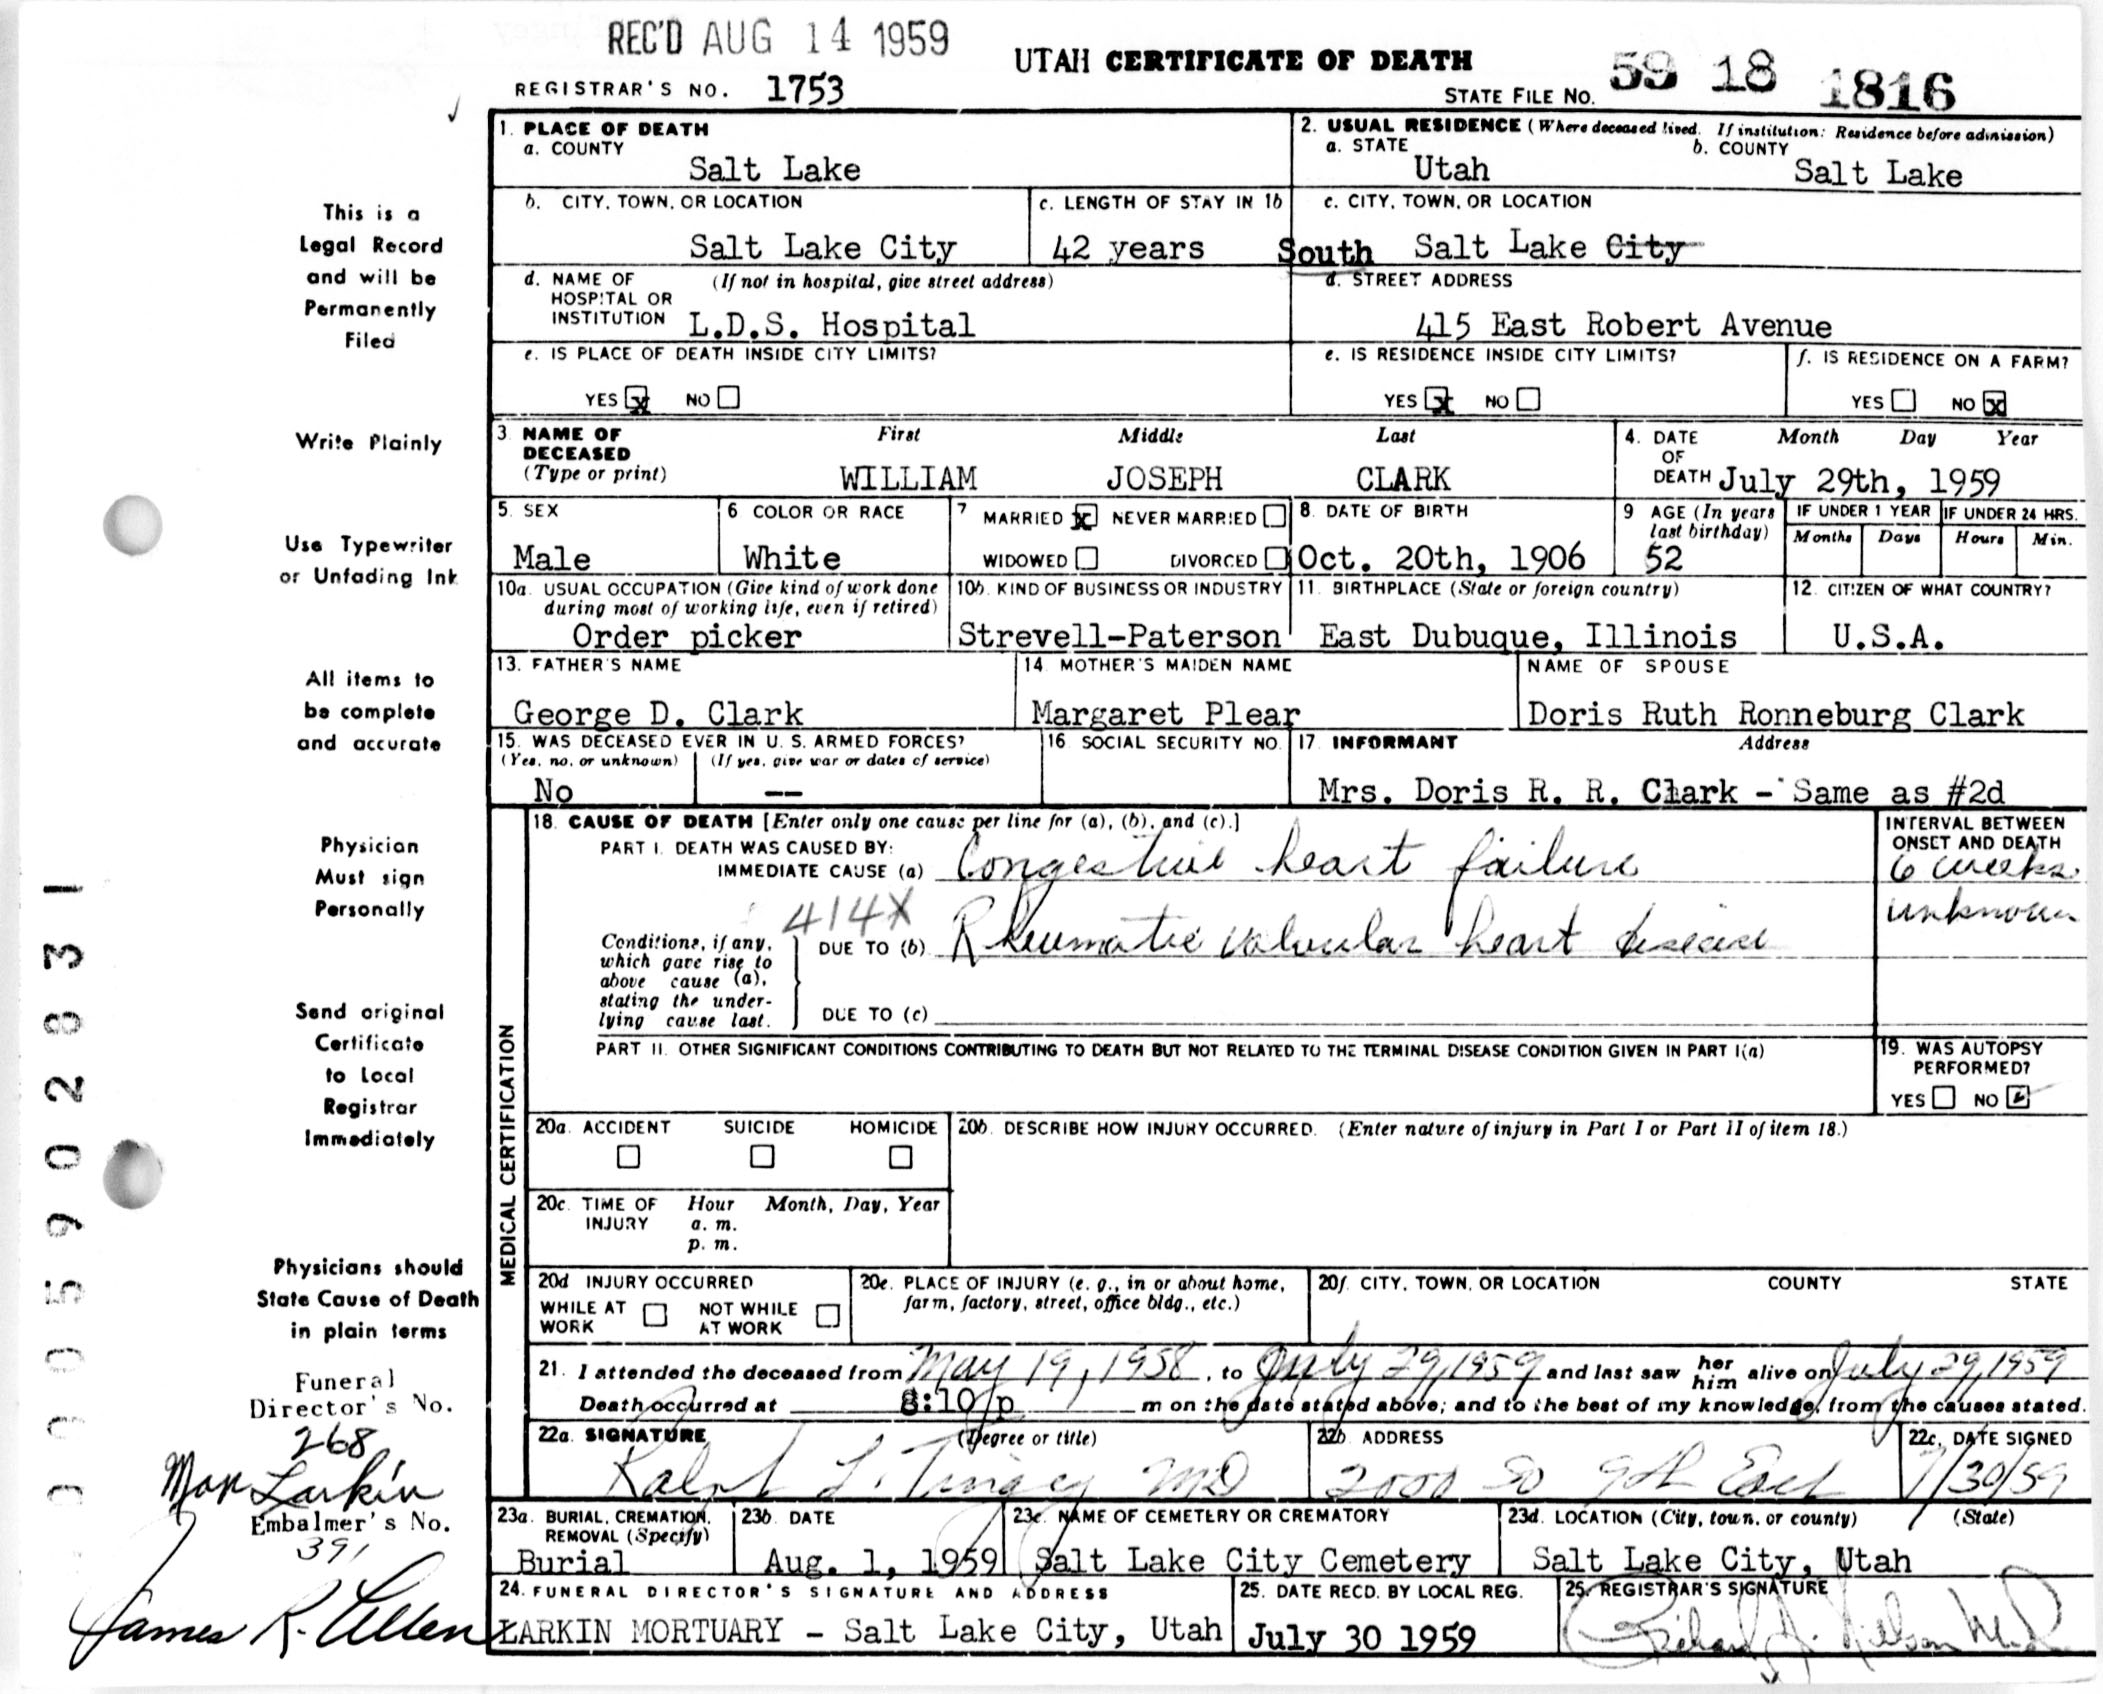 REC'D AUG 14 1959
UTAH CERTIFICATE OF DEATH
59 18 1816
REGISTRAR'S NO. 1753
STATE FILE NO.
1. PLACE OF DEATH
a. COUNTY
Salt Lake
2. USUAL RESIDENCE (Where deceased lived. If institution: Residence before admission)
a. STATE
Utah
b. COUNTY
Salt Lake
This is a
Legal Record
and will be
Permanently
Filed
b. CITY, TOWN, OR LOCATION
Salt Lake City
c. LENGTH OF STAY IN 1b
42 years
c. CITY, TOWN, OR LOCATION
South Salt Lake City
d. NAME OF (If not in hospital, give street address)
HOSPITAL OR
INSTITUTION L.D.S. Hospital
d. STREET ADDRESS
415 East Robert Avenue
e. IS PLACE OF DEATH INSIDE CITY LIMITS?
YES x NO
e. IS RESIDENCE INSIDE CITY LIMITS?
YES x NO
f. IS RESIDENCE ON A FARM?
YES NO x
Write Plainly
3. NAME OF DECEASED
(Type or print)
First Middle Last
WILLIAM JOSEPH CLARK
4. DATE OF DEATH
Month Day Year
July 29th, 1959
Use Typewriter
or Unfading Ink
5. SEX
Male
6 COLOR OR RACE
White
7 MARRIED x NEVER MARRIED
WIDOWED DIVORCED
8. DATE OF BIRTH
Oct. 20th, 1906
9 AGE (In years
last birthday)
52
IF UNDER 1 YEAR
Months Days
IF UNDER 24 HRS.
Hours Min.
10a. USUAL OCCUPATION (Give kind of work done
during most of working life, even if retired)
Order picker
10b. KIND OF BUSINESS OR INDUSTRY
Strevell-Paterson
11. BIRTHPLACE (State or foreign country)
East Dubuque, Illinois
12. CITIZEN OF WHAT COUNTRY?
U.S.A.
All items to
be complete
and accurate
13. FATHER'S NAME
George D. Clark
14. MOTHER'S MAIDEN NAME
Margaret Plear
NAME OF SPOUSE
Doris Ruth Ronneburg Clark
15. WAS DECEASED EVER IN U. S. ARMED FORCES?
(Yes, no, or unknown) (If yes, give war or dates of service)
No --
16. SOCIAL SECURITY NO.
17. INFORMANT Address
Mrs. Doris R. R. Clark - Same as #2d
Physician
Must sign
Personally
MEDICAL CERTIFICATION
18. CAUSE OF DEATH [Enter only one cause per line for (a), (b), and (c).]
PART I. DEATH WAS CAUSED BY:
IMMEDIATE CAUSE (a) Congestive heart failure
INTERVAL BETWEEN
ONSET AND DEATH
6 weeks
414X
Conditions, if any,
which gave rise to
above cause (a),
stating the under-
lying cause last.
DUE TO (b) Rheumatic valvular heart disease
unknown
DUE TO (c)
Send original
Certificate
to Local
Registrar
Immediately
PART II. OTHER SIGNIFICANT CONDITIONS CONTRIBUTING TO DEATH BUT NOT RELATED TO THE TERMINAL DISEASE CONDITION GIVEN IN PART I(a)
19. WAS AUTOPSY
PERFORMED?
YES NO ✓
20a. ACCIDENT SUICIDE HOMICIDE
20b. DESCRIBE HOW INJURY OCCURRED. (Enter nature of injury in Part I or Part II of item 18.)
20c. TIME OF INJURY
Hour Month, Day, Year
a. m.
p. m.
Physicians should
State Cause of Death
in plain terms
20d INJURY OCCURRED
WHILE AT WORK NOT WHILE AT WORK
20e. PLACE OF INJURY (e. g., in or about home,
farm, factory, street, office bldg., etc.)
20f. CITY, TOWN, OR LOCATION COUNTY STATE
21. I attended the deceased from May 19, 1958, to July 29, 1959 and last saw her him alive on July 29, 1959
Death occurred at 8:10 p m on the date stated above; and to the best of my knowledge, from the causes stated.
22a. SIGNATURE (Degree or title)
Ralph L. Tingey MD
22b. ADDRESS
2000 So 9th East
22c. DATE SIGNED
7/30/59
Funeral
Director's No.
268
Max Larkin
Embalmer's No.
391
James R. Allen
23a. BURIAL, CREMATION,
REMOVAL (Specify)
Burial
23b. DATE
Aug. 1, 1959
23c. NAME OF CEMETERY OR CREMATORY
Salt Lake City Cemetery
23d. LOCATION (City, town, or county) (State)
Salt Lake City, Utah
24. FUNERAL DIRECTOR'S SIGNATURE AND ADDRESS
LARKIN MORTUARY - Salt Lake City, Utah
25. DATE RECD. BY LOCAL REG.
July 30 1959
25. REGISTRAR'S SIGNATURE
Richard Nelson M.D.
0005902831